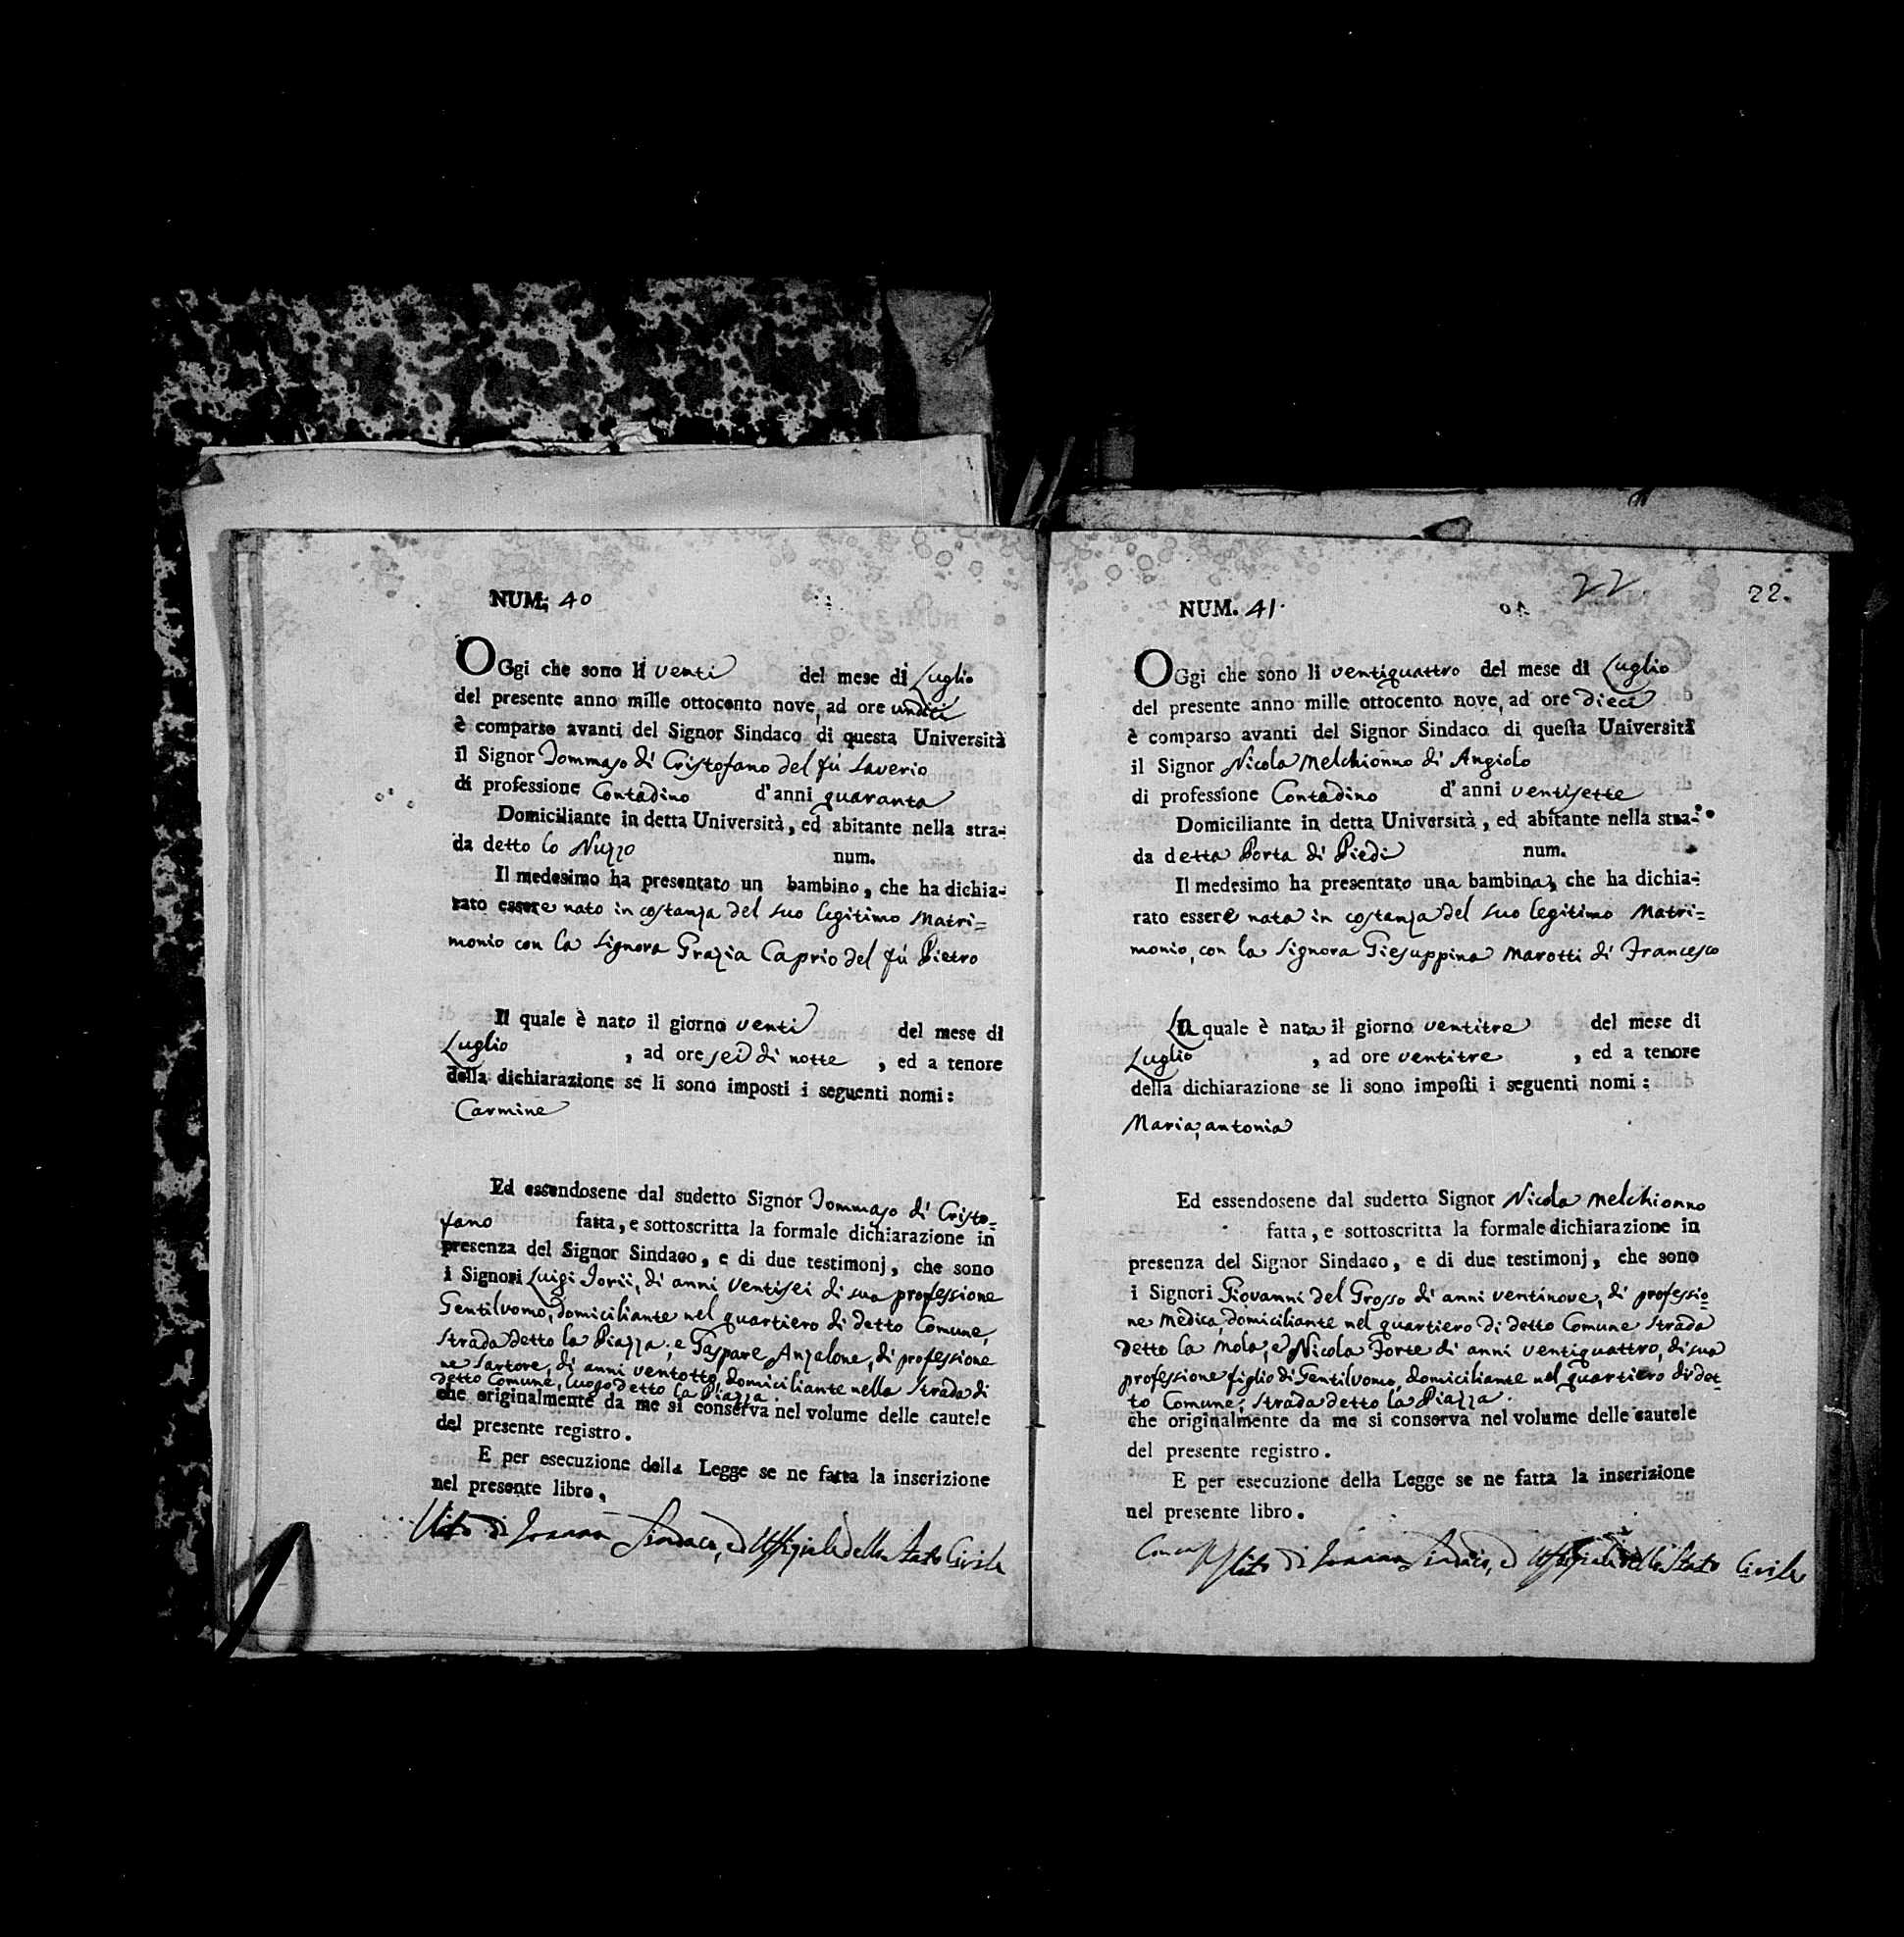 NUM; 40
OGgi che sono li venti del mese di Luglio
del presente anno mille ottocento nove, ad ore undici
è comparso avanti del Signor Sindaco di questa Università
il Signor Tommaso di Cristofano del fù Saverio
di professione Contadino d'anni quaranta
Domiciliante in detta Università, ed abitante nella stra-
da detto lo Nuzzo num.
Il medesimo ha presentato un bambino, che ha dichia-
rato essere nato in costanza del suo legitimo Matri=
monio con la Signora Grazia Caprio del fù Pietro
Il quale è nato il giorno venti del mese di
Luglio , ad ore sei di notte , ed a tenore
della dichiarazione se li sono imposti i seguenti nomi:
Carmine
Ed essendosene dal sudetto Signor Tommaso di Cristo=
fano fatta, e sottoscritta la formale dichiarazione in
presenza del Signor Sindaco, e di due testimonj, che sono
i Signori Luigi Iorii, di anni ventisei di sua professione
Gentiluomo, domiciliante nel quartiero di detto Comune,
strada detto la Piazza; e Gaspare Anzalone, di professione
ne Sartore, di anni ventotto, domiciliante nella Strada di
detto Comune, luogo detto la Piazza.
che originalmente da me si conserva nel volume delle cautele
del presente registro.
E per esecuzione della Legge se ne fatta la inscrizione
nel presente libro.
Vito di Sindaco, ed Uffiziale dello Stato Civile
22. 22.
NUM. 41.
OGgi che sono li ventiquattro del mese di Luglio
del presente anno mille ottocento nove, ad ore dieci
è comparso avanti del Signor Sindaco di questa Università
il Signor Nicola Melchionno di Angiolo
di professione Contadino d'anni ventisette
Domiciliante in detta Università, ed abitante nella stra-
da detta Porta di Piedi num.
Il medesimo ha presentato una bambina, che ha dichia-
rato essere nata in costanza del suo legitimo Matri=
monio, con la Signora Giesuppina Marotti di Francesco
La quale è nata il giorno ventitre del mese di
Luglio , ad ore ventitre , ed a tenore
della dichiarazione se li sono imposti i seguenti nomi:
Maria, antonia
Ed essendosene dal sudetto Signor Nicola Melchionno
fatta, e sottoscritta la formale dichiarazione in
presenza del Signor Sindaco, e di due testimonj, che sono
i Signori Giovanni del Grosso di anni ventinove, di professio=
ne Medico, domiciliante nel quartiero di detto Comune Strada
detto la Mola, e Nicola Forte di anni ventiquattro, di sua
professione figlio di Gentiluomo, domiciliante nel quartiero di det=
to Comune, strada detto la Piazza.
che originalmente da me si conserva nel volume delle cautele
del presente registro.
E per esecuzione della Legge se ne fatta la inscrizione
nel presente libro.
Vito di Sindaco, ed Uffiziale dello Stato Civile